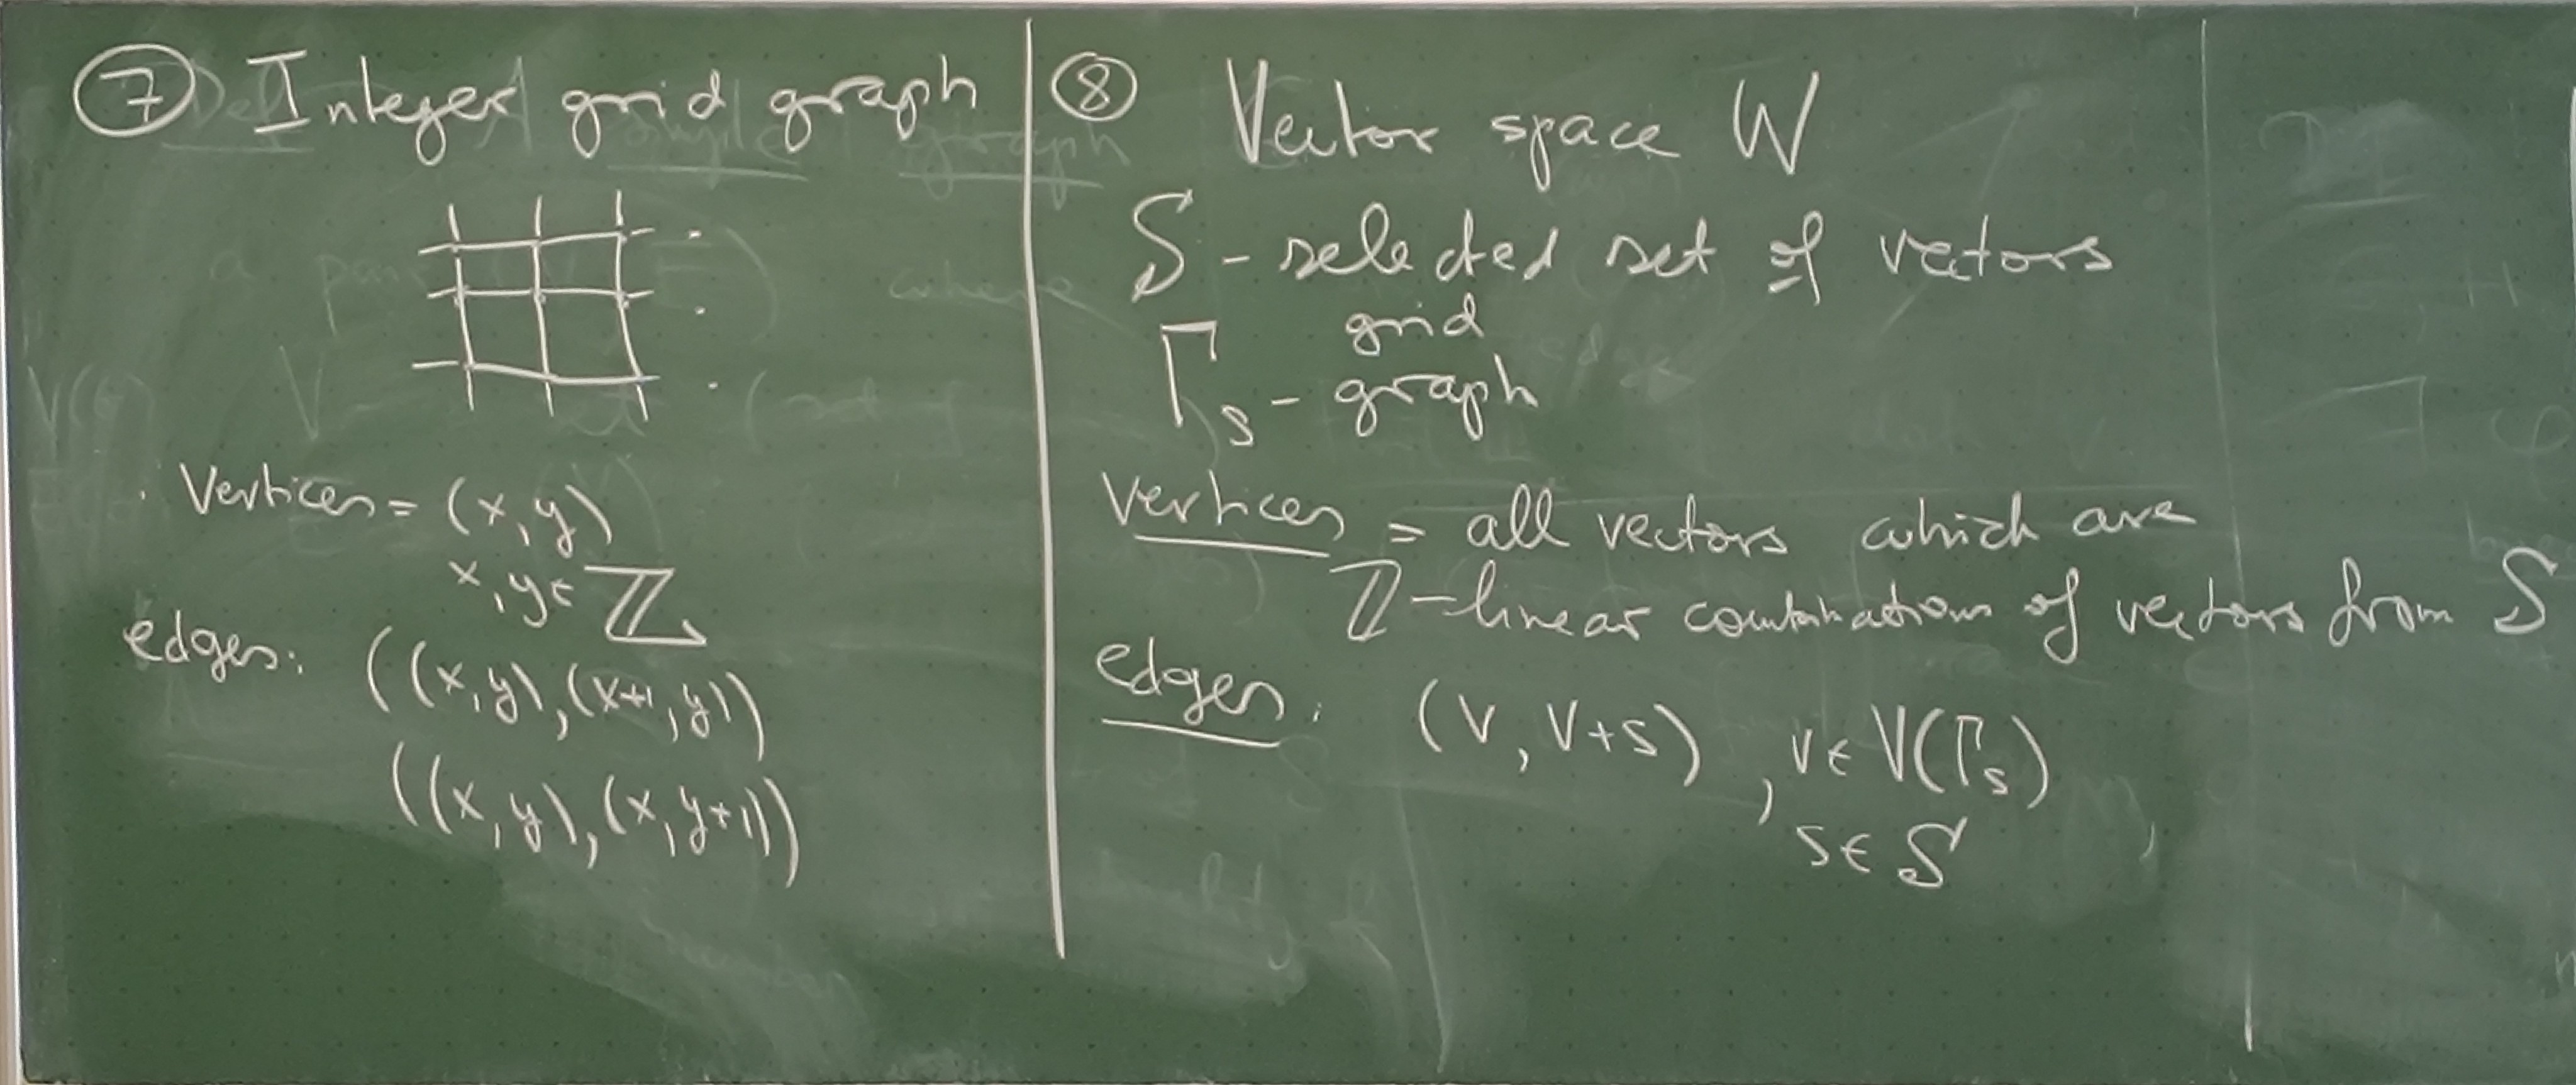 ⑦ Integer grid graph
Vertices = (x,y)
x,y ∈ ℤ
edges: ((x,y),(x+1,y))
((x,y),(x,y+1))
⑧ Vector space W
S - selected set of vectors
grid
Γ_S - graph
vertices = all vectors which are
ℤ-linear combinations of vectors from S
edges: (v, v+s), v ∈ V(Γ_S)
s ∈ S